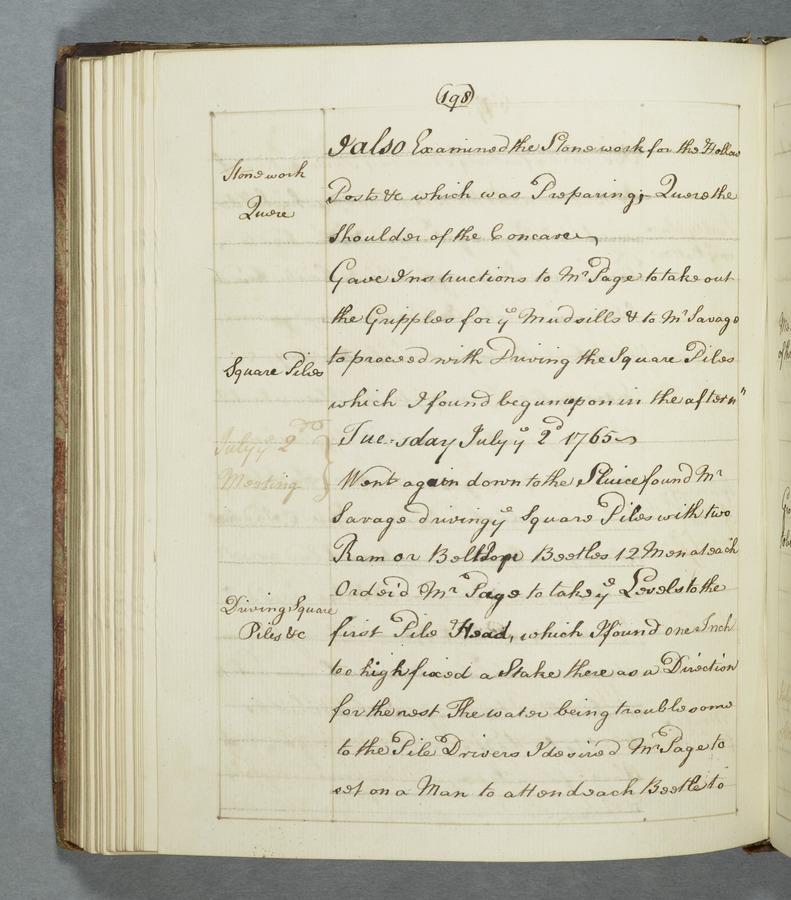 (198)
I also Examined the Stone work for the Hollow
Stone work
Quere
Posts &c which was Preparing; Quere the
Shoulder of the Concave
Gave Instructions to Mr Page to take out
the Gripples for ye Mudsills & to Mr Savage
Square Piles
to proceed with Driving the Square Piles
which I found begun upon in the aftern"
July ye 2d
Meeting
Tue:sday July ye 2d 1765
Went again down to the Sluice found Mr
Savage driving ye Square Piles with two
Ram or Beetles 12 Men at each
Orded Mr Page to take ye Levels to the
Driving Square
Piles &c
first Pile Head, which I found one Inch
too high fixed a Stake there as a Direction
for the rest The water being troublesome
to the Pile Drivers I desired Mr Page to
set on a Man to attend each Beetle to